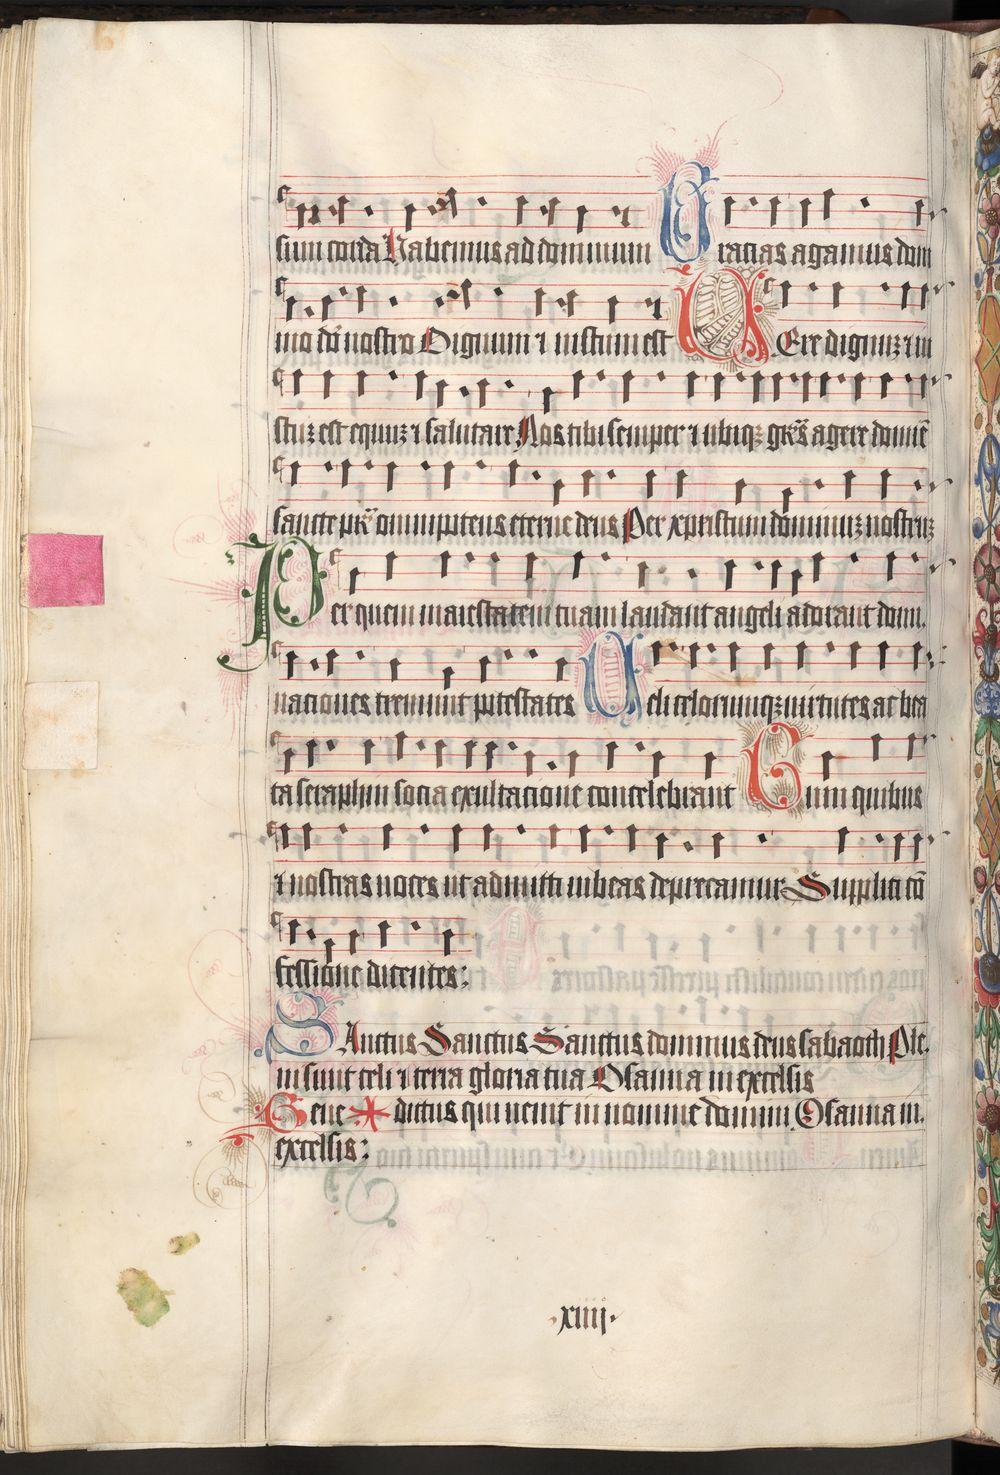 sum corda Habemus ad dominum Gracias agamus dom
ino dō nostro Dignum ⁊ iustum est VEre dignuꝫ ⁊ iu
stuꝫ est equuꝫ ⁊ salutare Nos tibi semper ⁊ ubiqꝫ grās agere domiē
sancte pīr omnipotens eterne deus Per xpristum dominuꝫ nostruꝫ
Per quem maiestatem tuam laudant angeli adorant domi.
nationes tremunt potestates Celi celorumqꝫ uirtutes ac bea
ta seraphin socia exultatione concelebrant Cum quibus
⁊ nostras uoces ut admitti iubeas deprecamur Supplici cō
fessione dicentes:
SAnctus Sanctus Sanctus dominus deus sabaoth Ple.
ni sunt celi ⁊ terra gloria tua Osanna in excelsis
Bene ✠ dictus qui uenit in nomine domini Osanna in.
excelsis:
·xiiij·